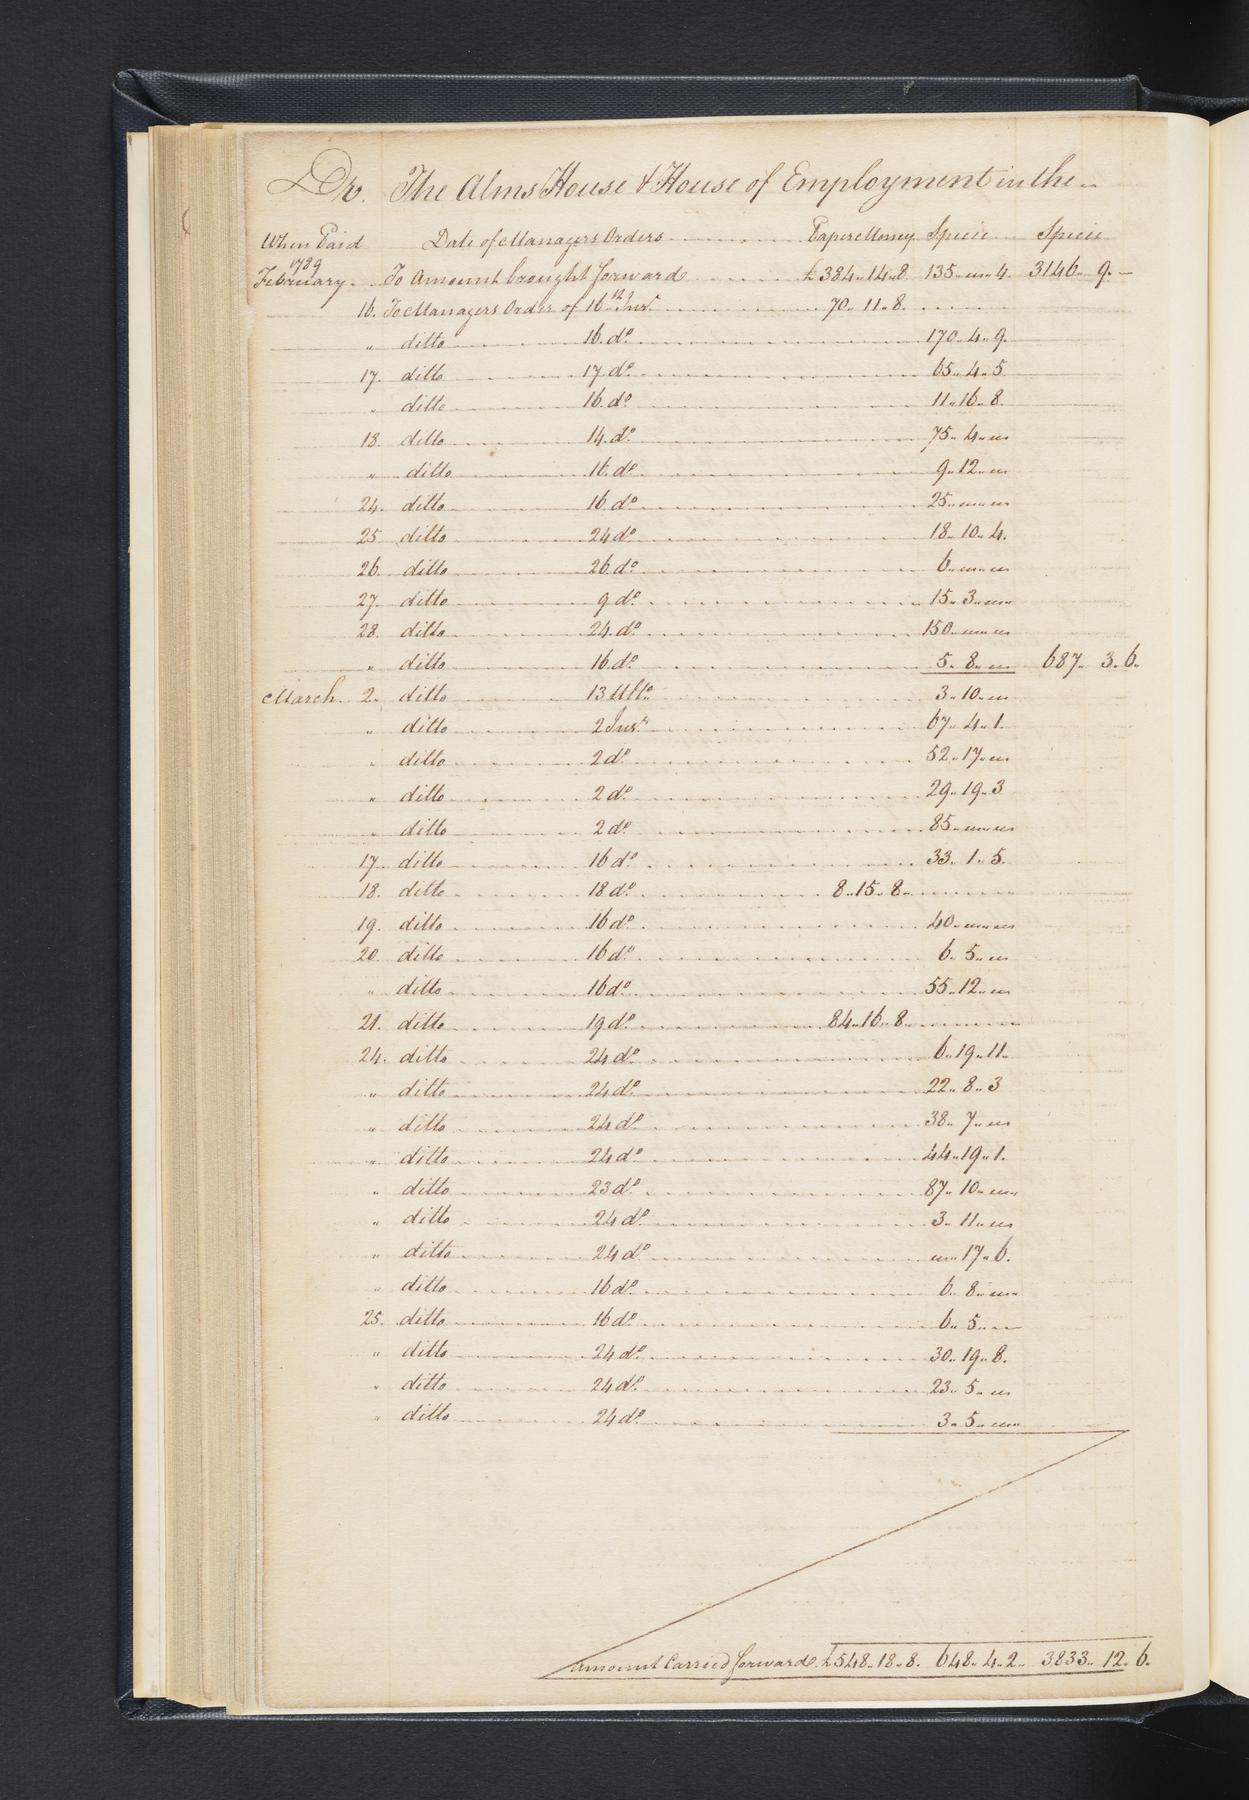 Dr. The Alms House & House of Employment in the
When Paid Date of Managers Orders Paper Money Specie Specie
1789
February. To Amount brought forward £384..14..8 135..„..4. 3146.. 9.—
16. To Managers Order of 16th Inst. 70..11..8.
„ ditto 16. do. 170..4..9.
17. ditto 17. do. 65..4..5
„ ditto 16. do. 11..16..8.
18. ditto 14. do. 75..4..„
„ ditto 16. do. 9..12..„
24. ditto 16 do. 25..„..„
25 ditto 24 do. 18..10..4.
26. ditto 26. do. 6..„..„
27. ditto 9 do. 15..3..„
28. ditto 24. do. 150..„..„
„ ditto 16 do. 5..8..„ 687.. 3..6.
March. 2. ditto 13 Ulto. 3..10..„
„ ditto 2 Inst. 67..4..1.
„ ditto 2 do. 52..17..„
„ ditto 2 do. 29..19..3
„ ditto 2 do. 85..„..„
17. ditto 16 do. 33..1..5.
18. ditto 18 do. 8..15..8..
19. ditto 16 do. 40..„..„
20. ditto 16 do. 6..5..„
„ ditto 16 do. 55..12..„
21. ditto 19 do. 84..16..8.
24. ditto 24 do. 6..19..11.
„ ditto 24 do. 22..8..3
„ ditto 24 do. 38..7..„
„ ditto 24 do. 44..19..1.
„ ditto 23 do. 87..10..„
„ ditto 24 do. 3..11..„
„ ditto 24 do. „..17..6.
„ ditto 16 do. 6..8..„
25. ditto 16 do. 6..5..—
„ ditto 24 do. 30..19..8.
„ ditto 24 do. 23..5..„
„ ditto 24 do. 3..5..„
Amount Carried forward £548..18..8. 648..4..2.. 3833.. 12..6.